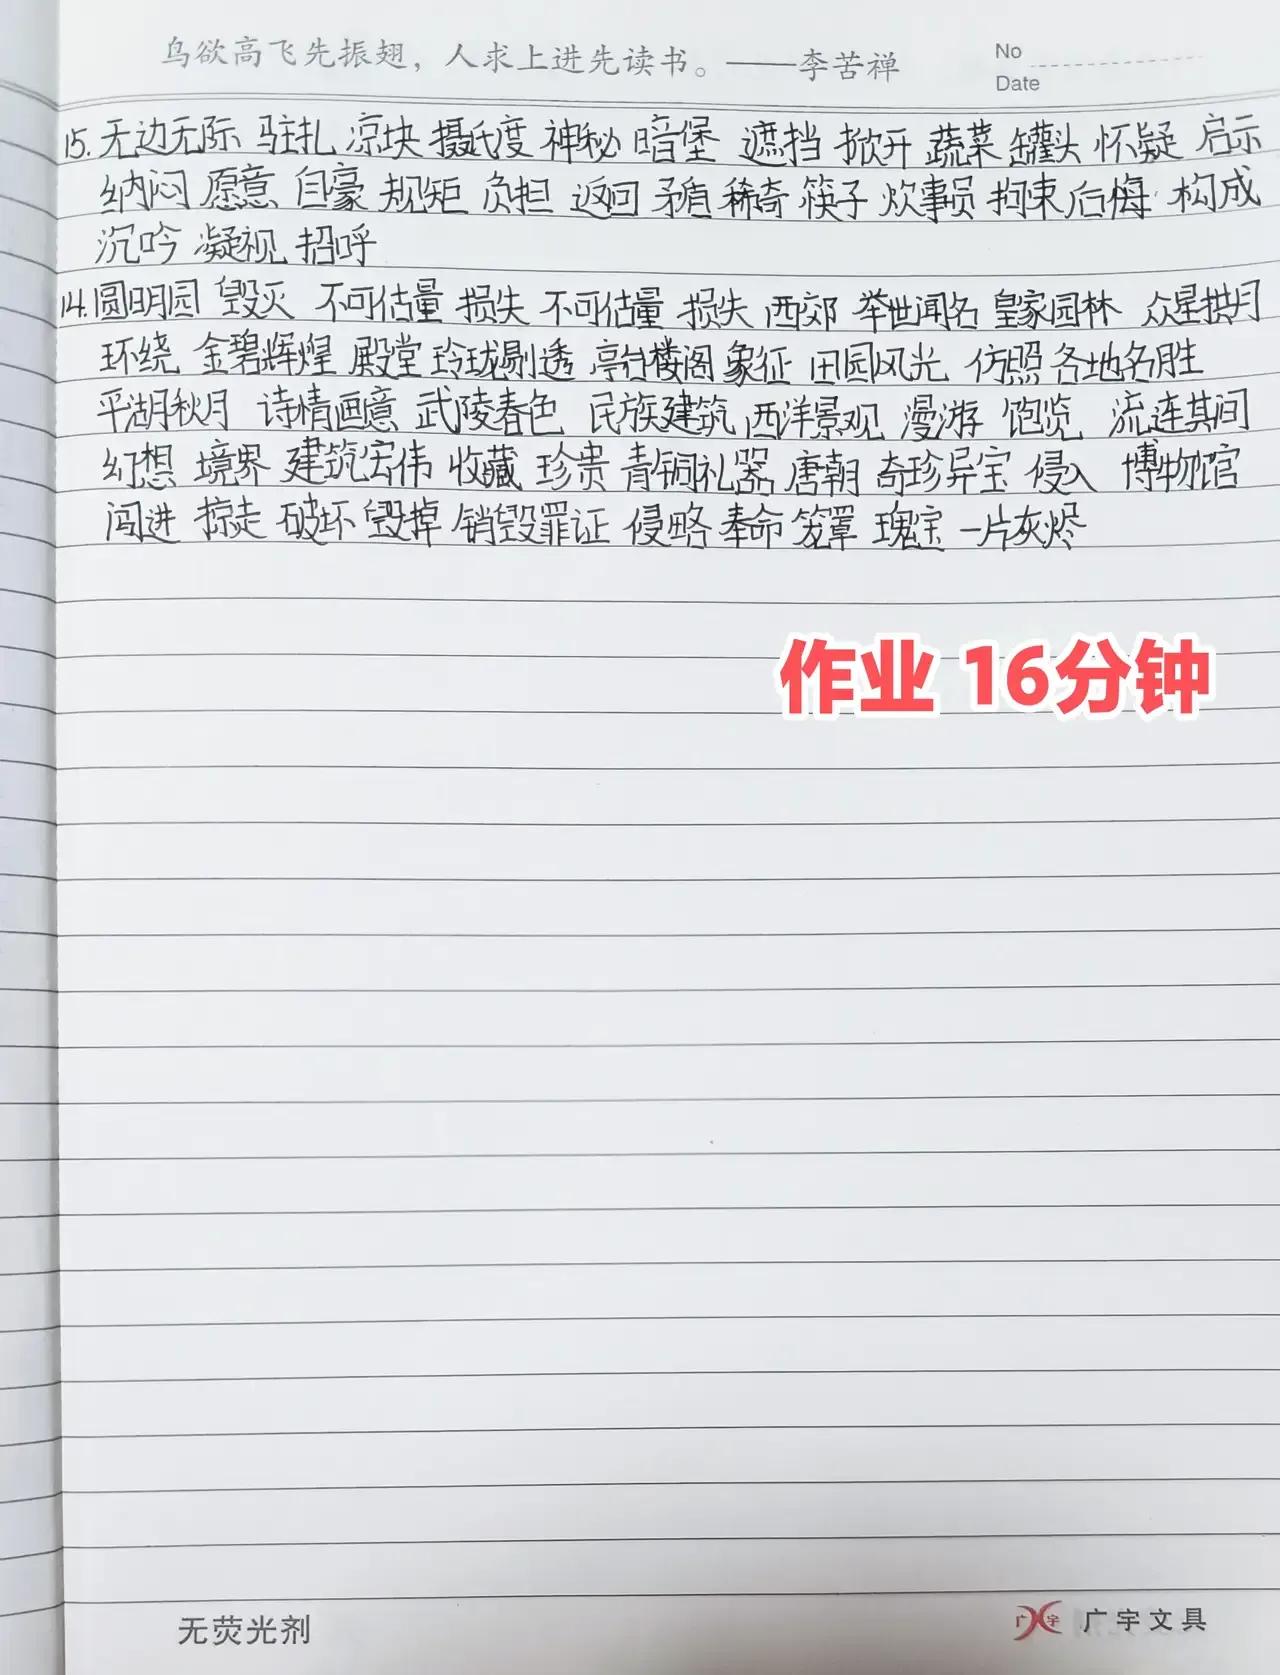 鸟欲高飞先振翅，人求上进先读书。——李苦禅
No
Date
15. 无边无际 驻扎 凉块 摄氏度 神秘 暗堡 遮挡 掀开 蔬菜 罐头 怀疑 启示
纳闷 愿意 自豪 规矩 负担 返回 矛盾 稀奇 筷子 炊事员 拘束 后悔 构成
沉吟 凝视 招呼
14. 圆明园 毁灭 不可估量 损失 不可估量 损失 西郊 举世闻名 皇家园林 众星拱月
环绕 金碧辉煌 殿堂 玲珑剔透 亭台楼阁 象征 田园风光 仿照 各地名胜
平湖秋月 诗情画意 武陵春色 民族建筑 西洋景观 漫游 饱览 流连其间
幻想 境界 建筑宏伟 收藏 珍贵 青铜礼器 唐朝 奇珍异宝 侵入 博物馆
闯进 掠走 破坏 毁掉 销毁罪证 侵略 奉命 笼罩 瑰宝 一片灰烬
作业 16分钟
无荧光剂
广宇文具